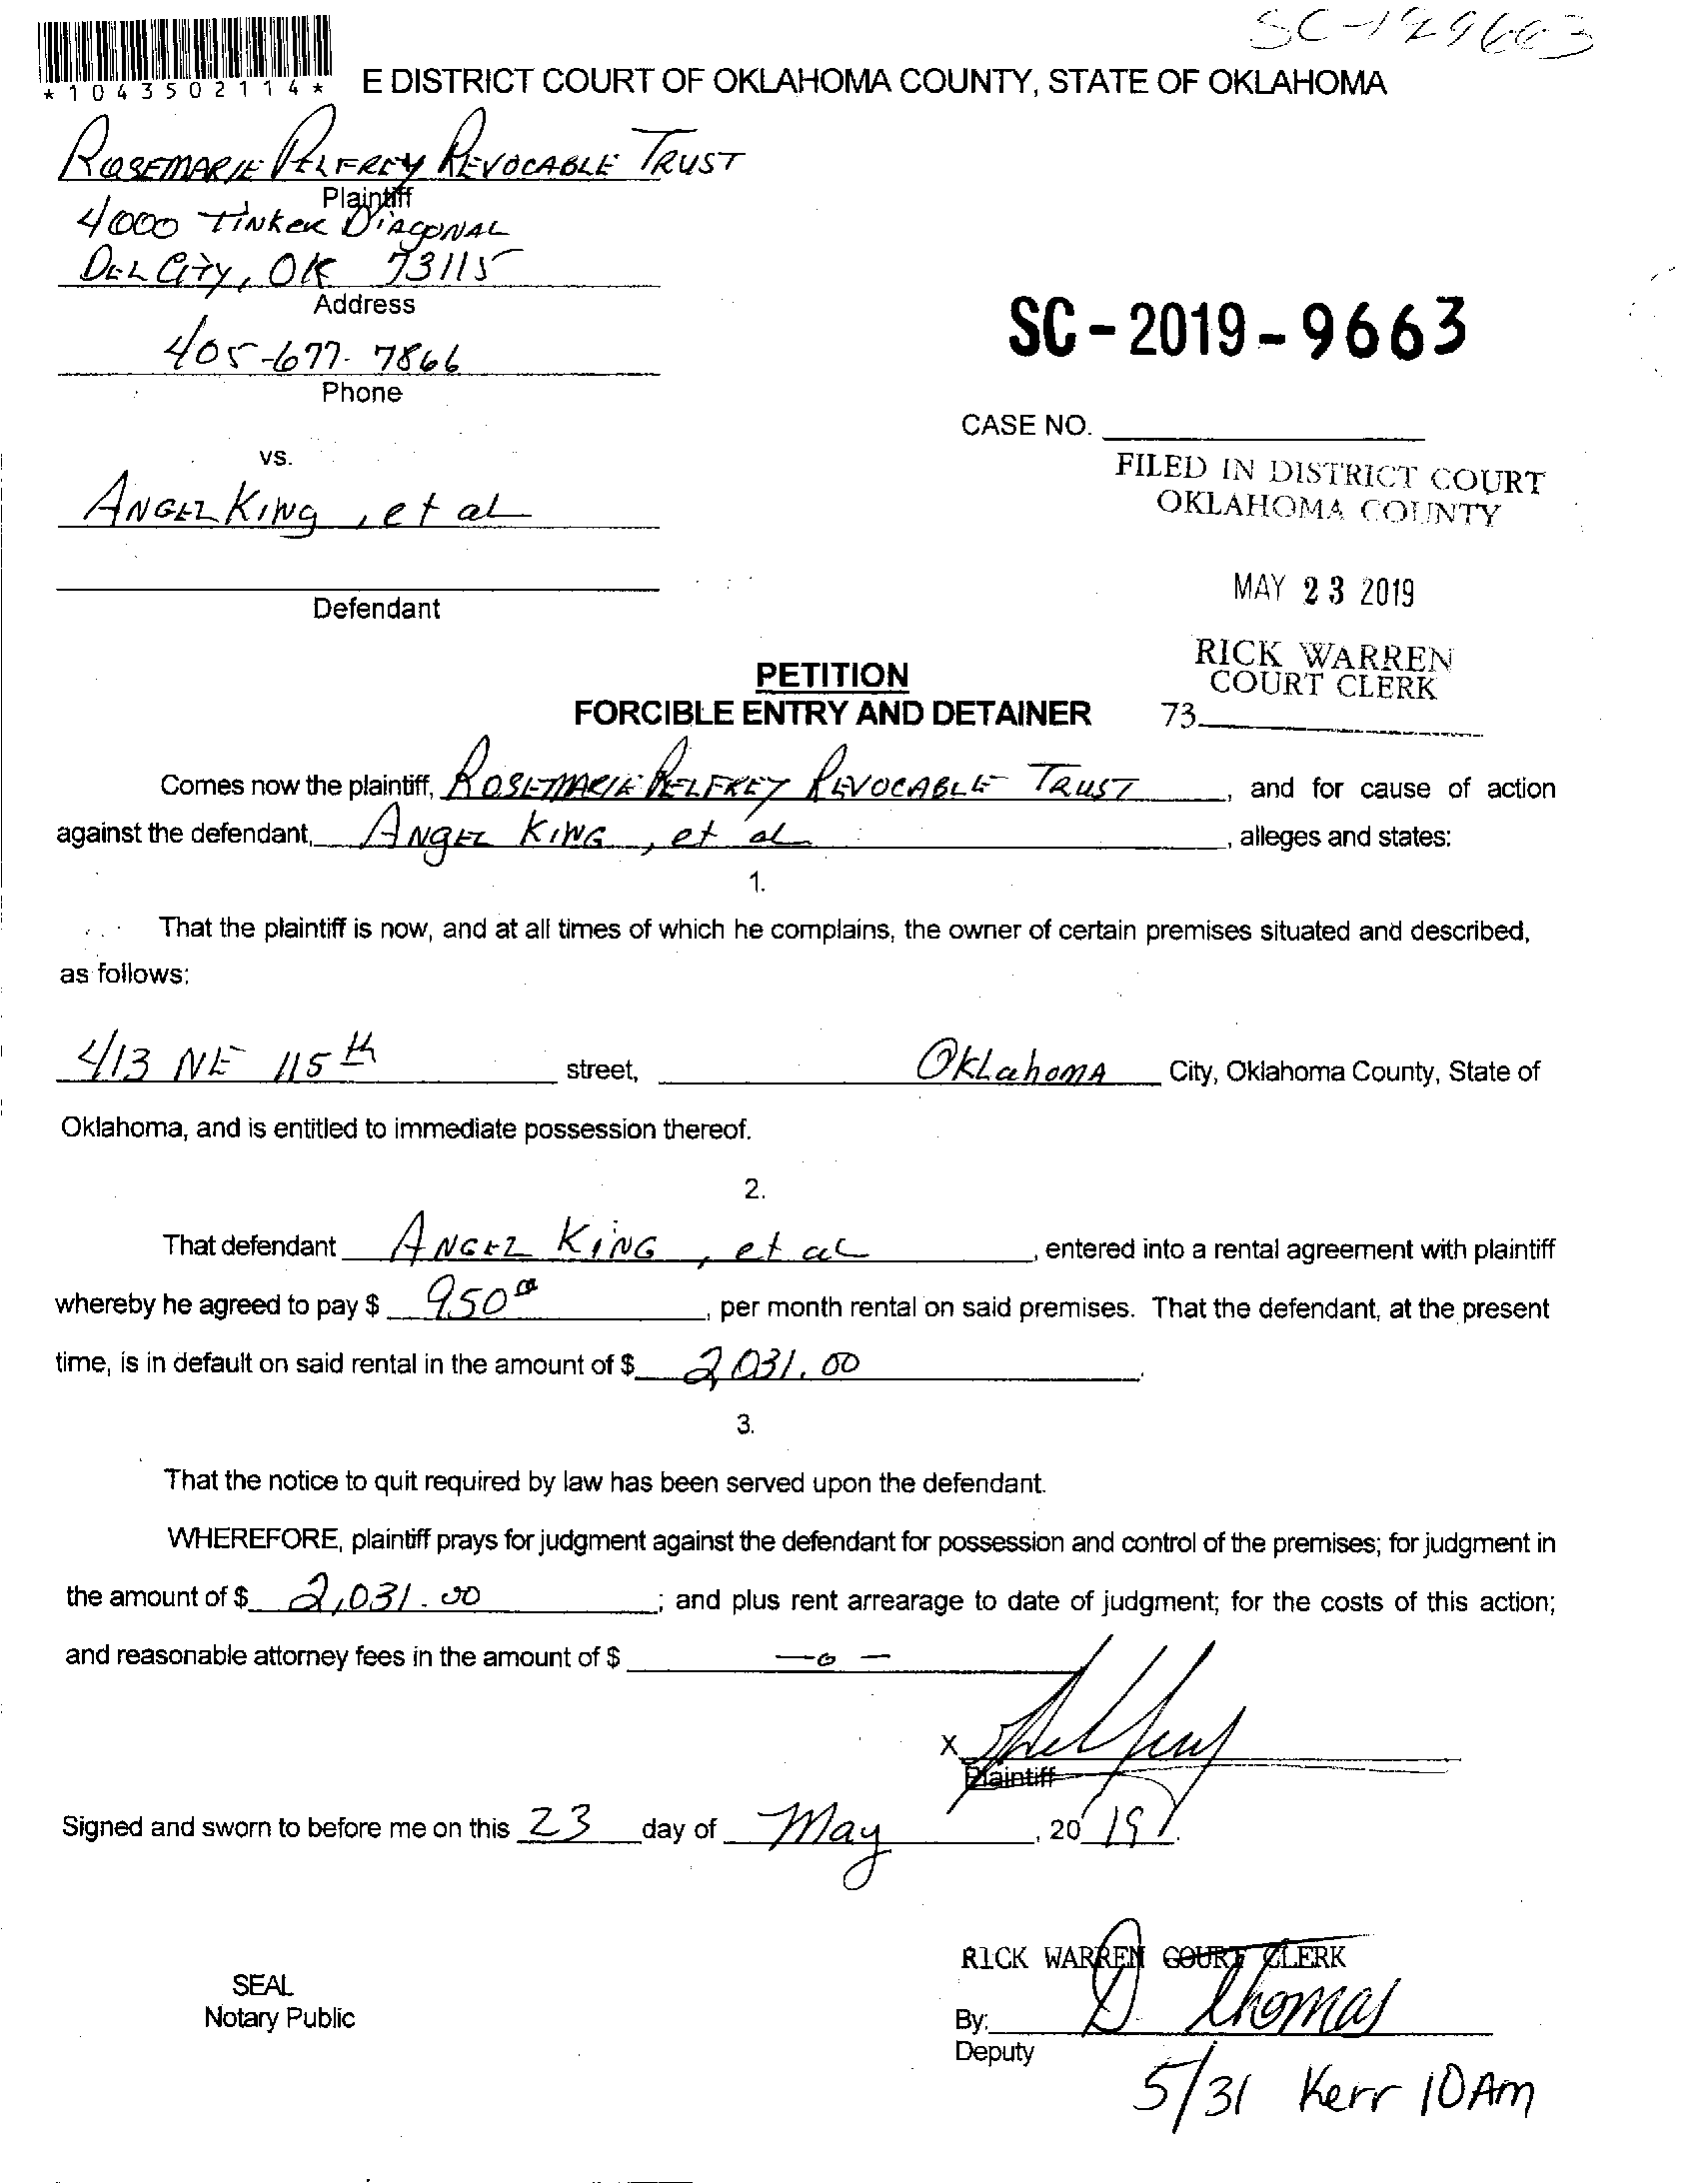 SC-199663
*1043502114*
E DISTRICT COURT OF OKLAHOMA COUNTY, STATE OF OKLAHOMA
ROSEMARIE PELFREY REVOCABLE TRUST
Plaintiff
4000 TINKER DIAGONAL
DEL CITY, OK 73115
Address
SC-2019-9663
405-677-7866
Phone
CASE NO.
vs.
FILED IN DISTRICT COURT
OKLAHOMA COUNTY
ANGEL KING, et al
MAY 23 2019
Defendant
RICK WARREN
COURT CLERK
PETITION
FORCIBLE ENTRY AND DETAINER
73
Comes now the plaintiff, ROSEMARIE PELFREY REVOCABLE TRUST, and for cause of action
against the defendant, ANGEL KING, et al, alleges and states:
1.
That the plaintiff is now, and at all times of which he complains, the owner of certain premises situated and described,
as follows:
413 NE 115th street, OKLahoma City, Oklahoma County, State of
Oklahoma, and is entitled to immediate possession thereof.
2.
That defendant ANGEL KING, et al, entered into a rental agreement with plaintiff
whereby he agreed to pay $ 950 00, per month rental on said premises. That the defendant, at the present
time, is in default on said rental in the amount of $ 2,031.00.
3.
That the notice to quit required by law has been served upon the defendant.
WHEREFORE, plaintiff prays for judgment against the defendant for possession and control of the premises; for judgment in
the amount of $ 2,031.00; and plus rent arrearage to date of judgment; for the costs of this action;
and reasonable attorney fees in the amount of $ -0-
X
Plaintiff
Signed and sworn to before me on this 23 day of May, 2019.
RICK WARREN COURT CLERK
SEAL
Notary Public
By: D. Thomas
Deputy
5/31 Kerr 10AM